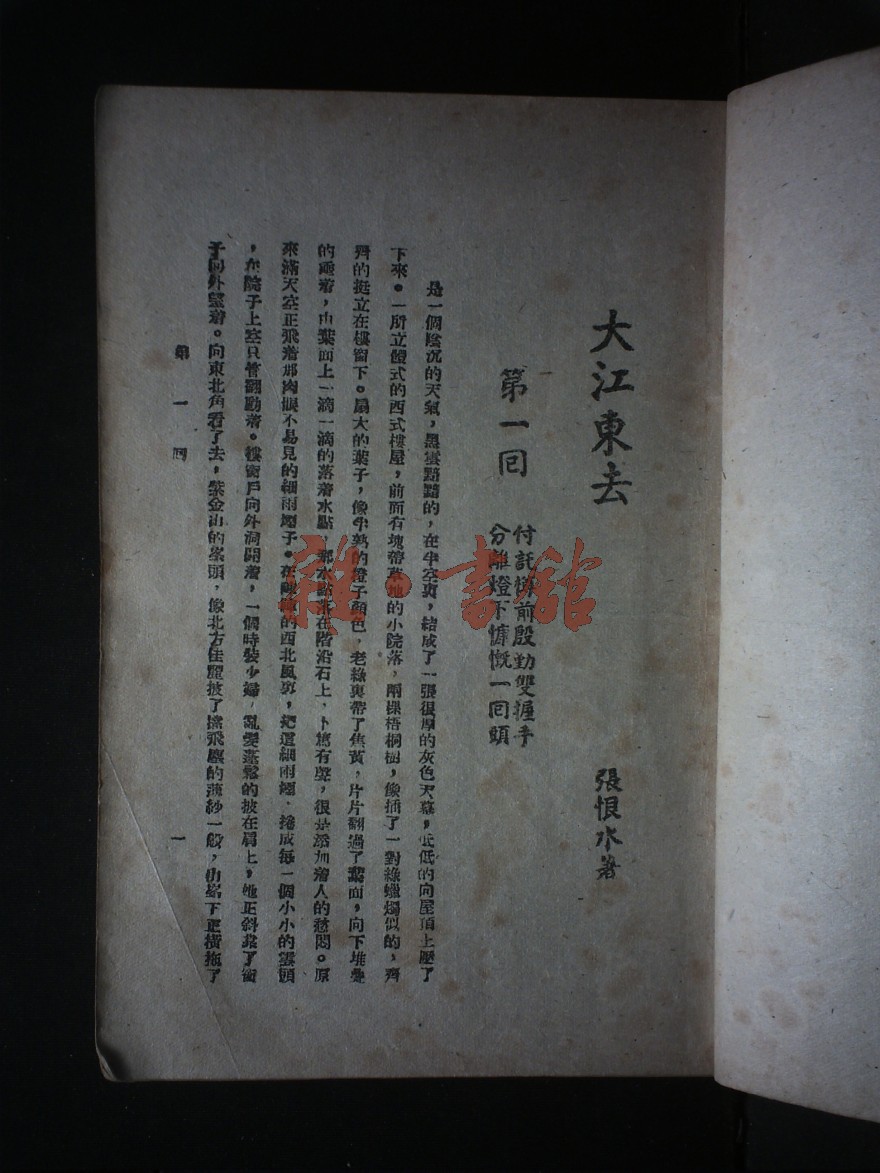 大江東去
張恨水著
第一回
付託樽前殷勤雙握手
分離燈下慷慨一回頭
是一個陰沉的天氣，黑雲黯黯的，在半空裏，結成了一張很厚的灰色天幕，低低的向屋頂上壓了
下來。一所立體式的西式樓屋，前面有塊帶草地的小院落，兩棵梧桐樹，像插了一對綠蠟燭似的，齊
齊的挺立在樓窗下。扇大的葉子，像半熟的橙子顏色，老綠裏帶了焦黃，片片翻過了葉面，向下堆疊
的垂着，由葉面上一滴一滴的落着水點 那水點落在階沿石上，卜篤有聲，很是添加着人的愁悶。原
來滿天空正飛着那肉眼不易見的細雨煙子。在陣陣的西北風裏，把這細雨煙，捲成每一個小小的雲頭
，在院子上空只管翻動着。樓窗戶向外洞開着，一個時裝少婦，亂髮蓬鬆的披在肩上，她正斜靠了窗
子向外望着。向東北角看了去，紫金山的峯頭，像北方佳麗披了擋飛塵的薄紗一般，山峯下正橫拖了
第一回
一
雜·書館